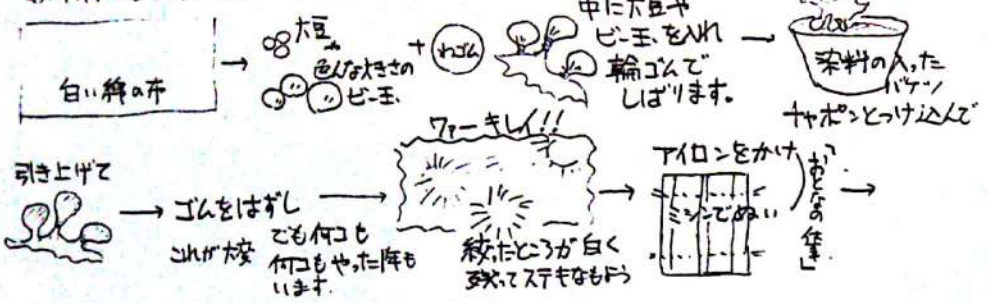 白い綿の布
大豆
色んな大きさの
ビー玉
わゴム
中に大豆や
ビー玉を入れ
輪ゴムで
しばります。
染料の入った
バケツ
チャポンとつけ込んで
引き上げて
ゴムをはずし
これが大変
でも何コも
何コもやった1年も
います。
ワァーキレイ!!
絞ったところが白く
残ってステキなもよう
アイロンをかけ
ミシンでぬい
「おとなの仕事」